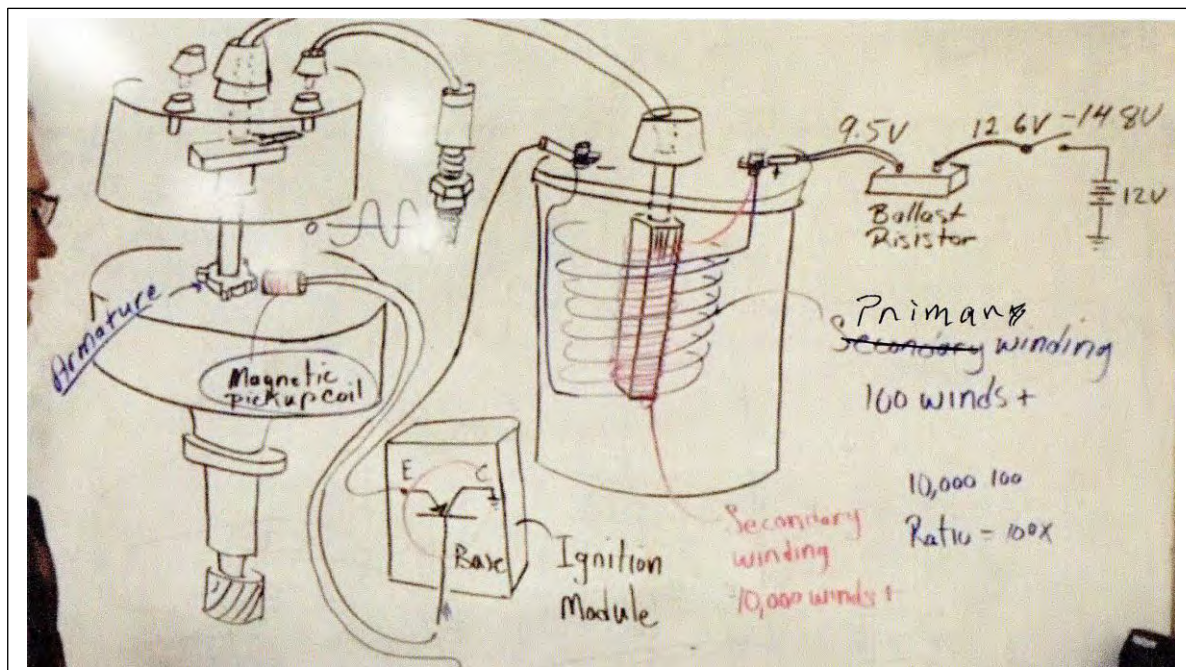 9.5V
12.6V -14.8V
12V
Ballast
Risistor
Armature
Magnetic
pickup coil
Primary
Secondary winding
100 winds +
E C
Base
Ignition
Module
Secondary
winding
10,000 winds +
10,000 100
Ratio = 100x